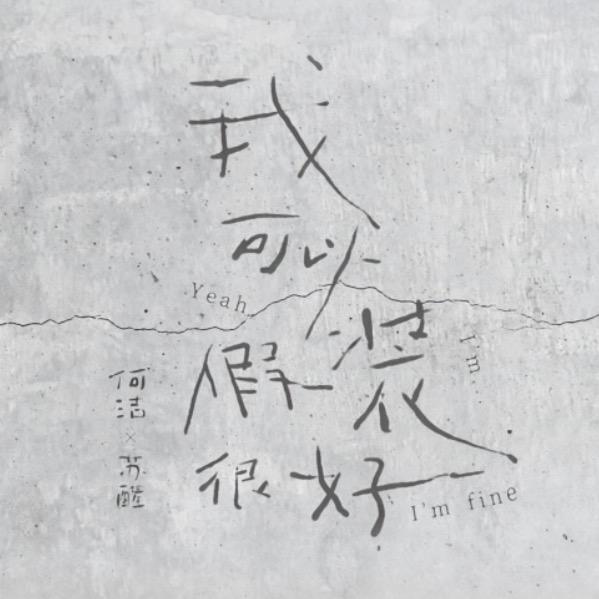 我
可以
Yeah
假装
I'm...
很好
I'm fine
何洁×苏醒